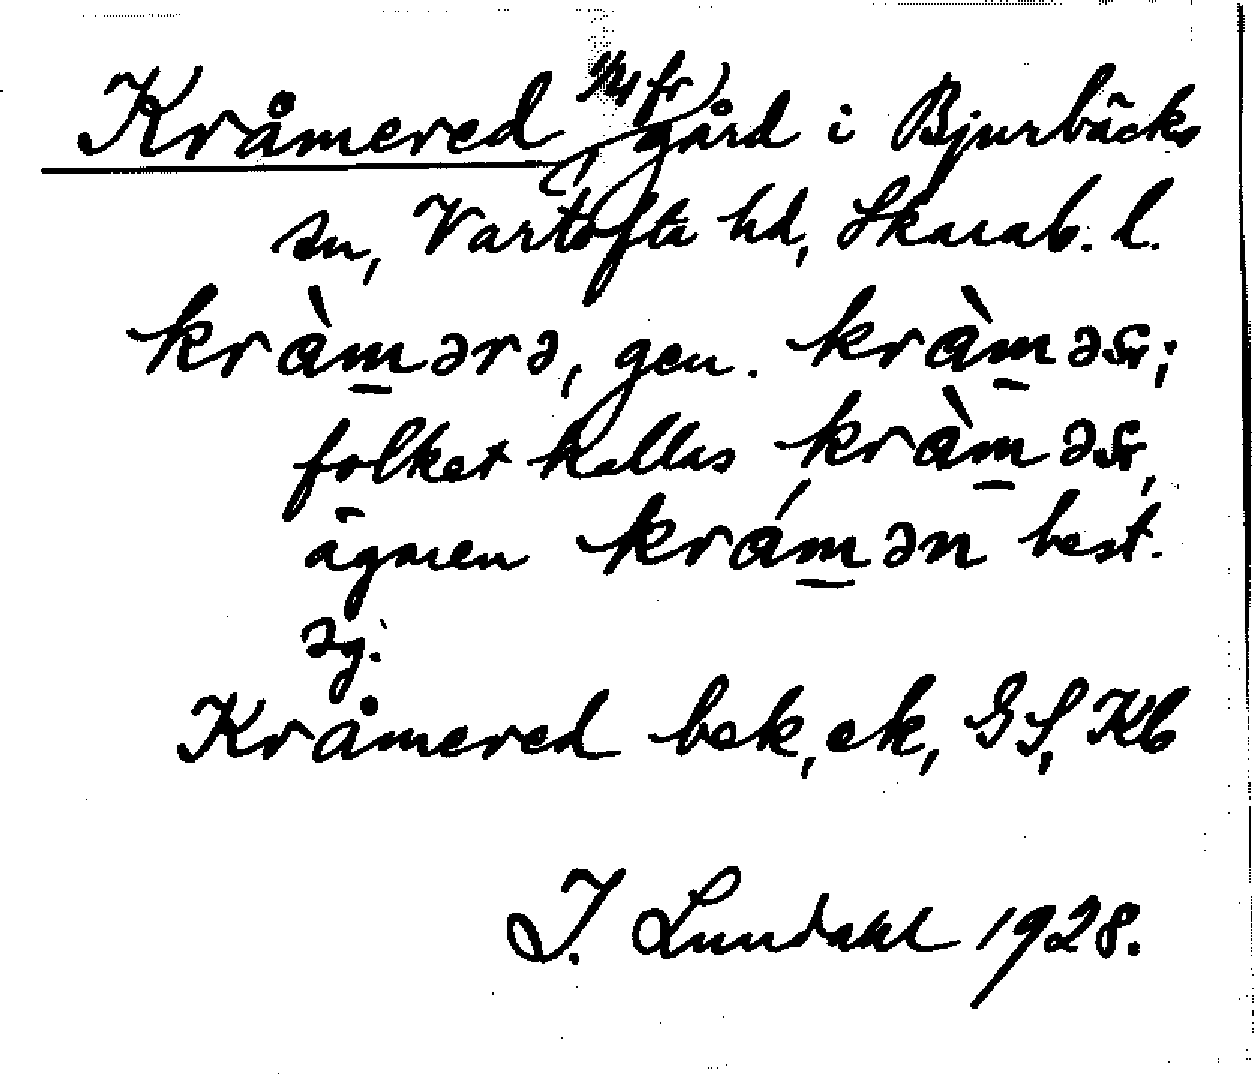 Kråmered (1/4 fr) gård i Bjurbäcks
sn, Vartofta hd, Skarab. l.
kràmərə, gen. kràməsr;
folket kallas kràməsr,
ägaren krámən best.
sg.
Kråmered bek, ek, GS, Kb
I. Lundahl 1928.